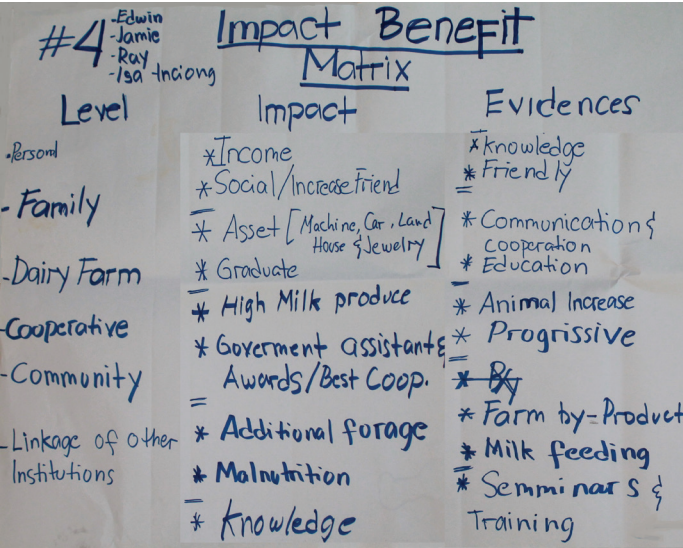 #4
-Edwin
-Jamie
-Ray
-Isa Inciong
Impact Benefit
Matrix
Level
•Personal
-Family
-Dairy Farm
-Cooperative
-Community
-Linkage of other
Institutions
Impact
*Income
*Social/Increase Friend
=
* Asset [Machine, Car, Land
House & Jewelry]
* Graduate
=
* High Milk produce
* Goverment assistant &
Awards/Best Coop.
=
* Additional forage
* Malnutrition
=
* Knowledge
Evidences
* Knowledge
* Friendly
=
* Communication &
cooperation
* Education
* Animal Increase
* Progrissive
=
* Farm by-Product
* Milk feeding
=
* Semminars &
Training